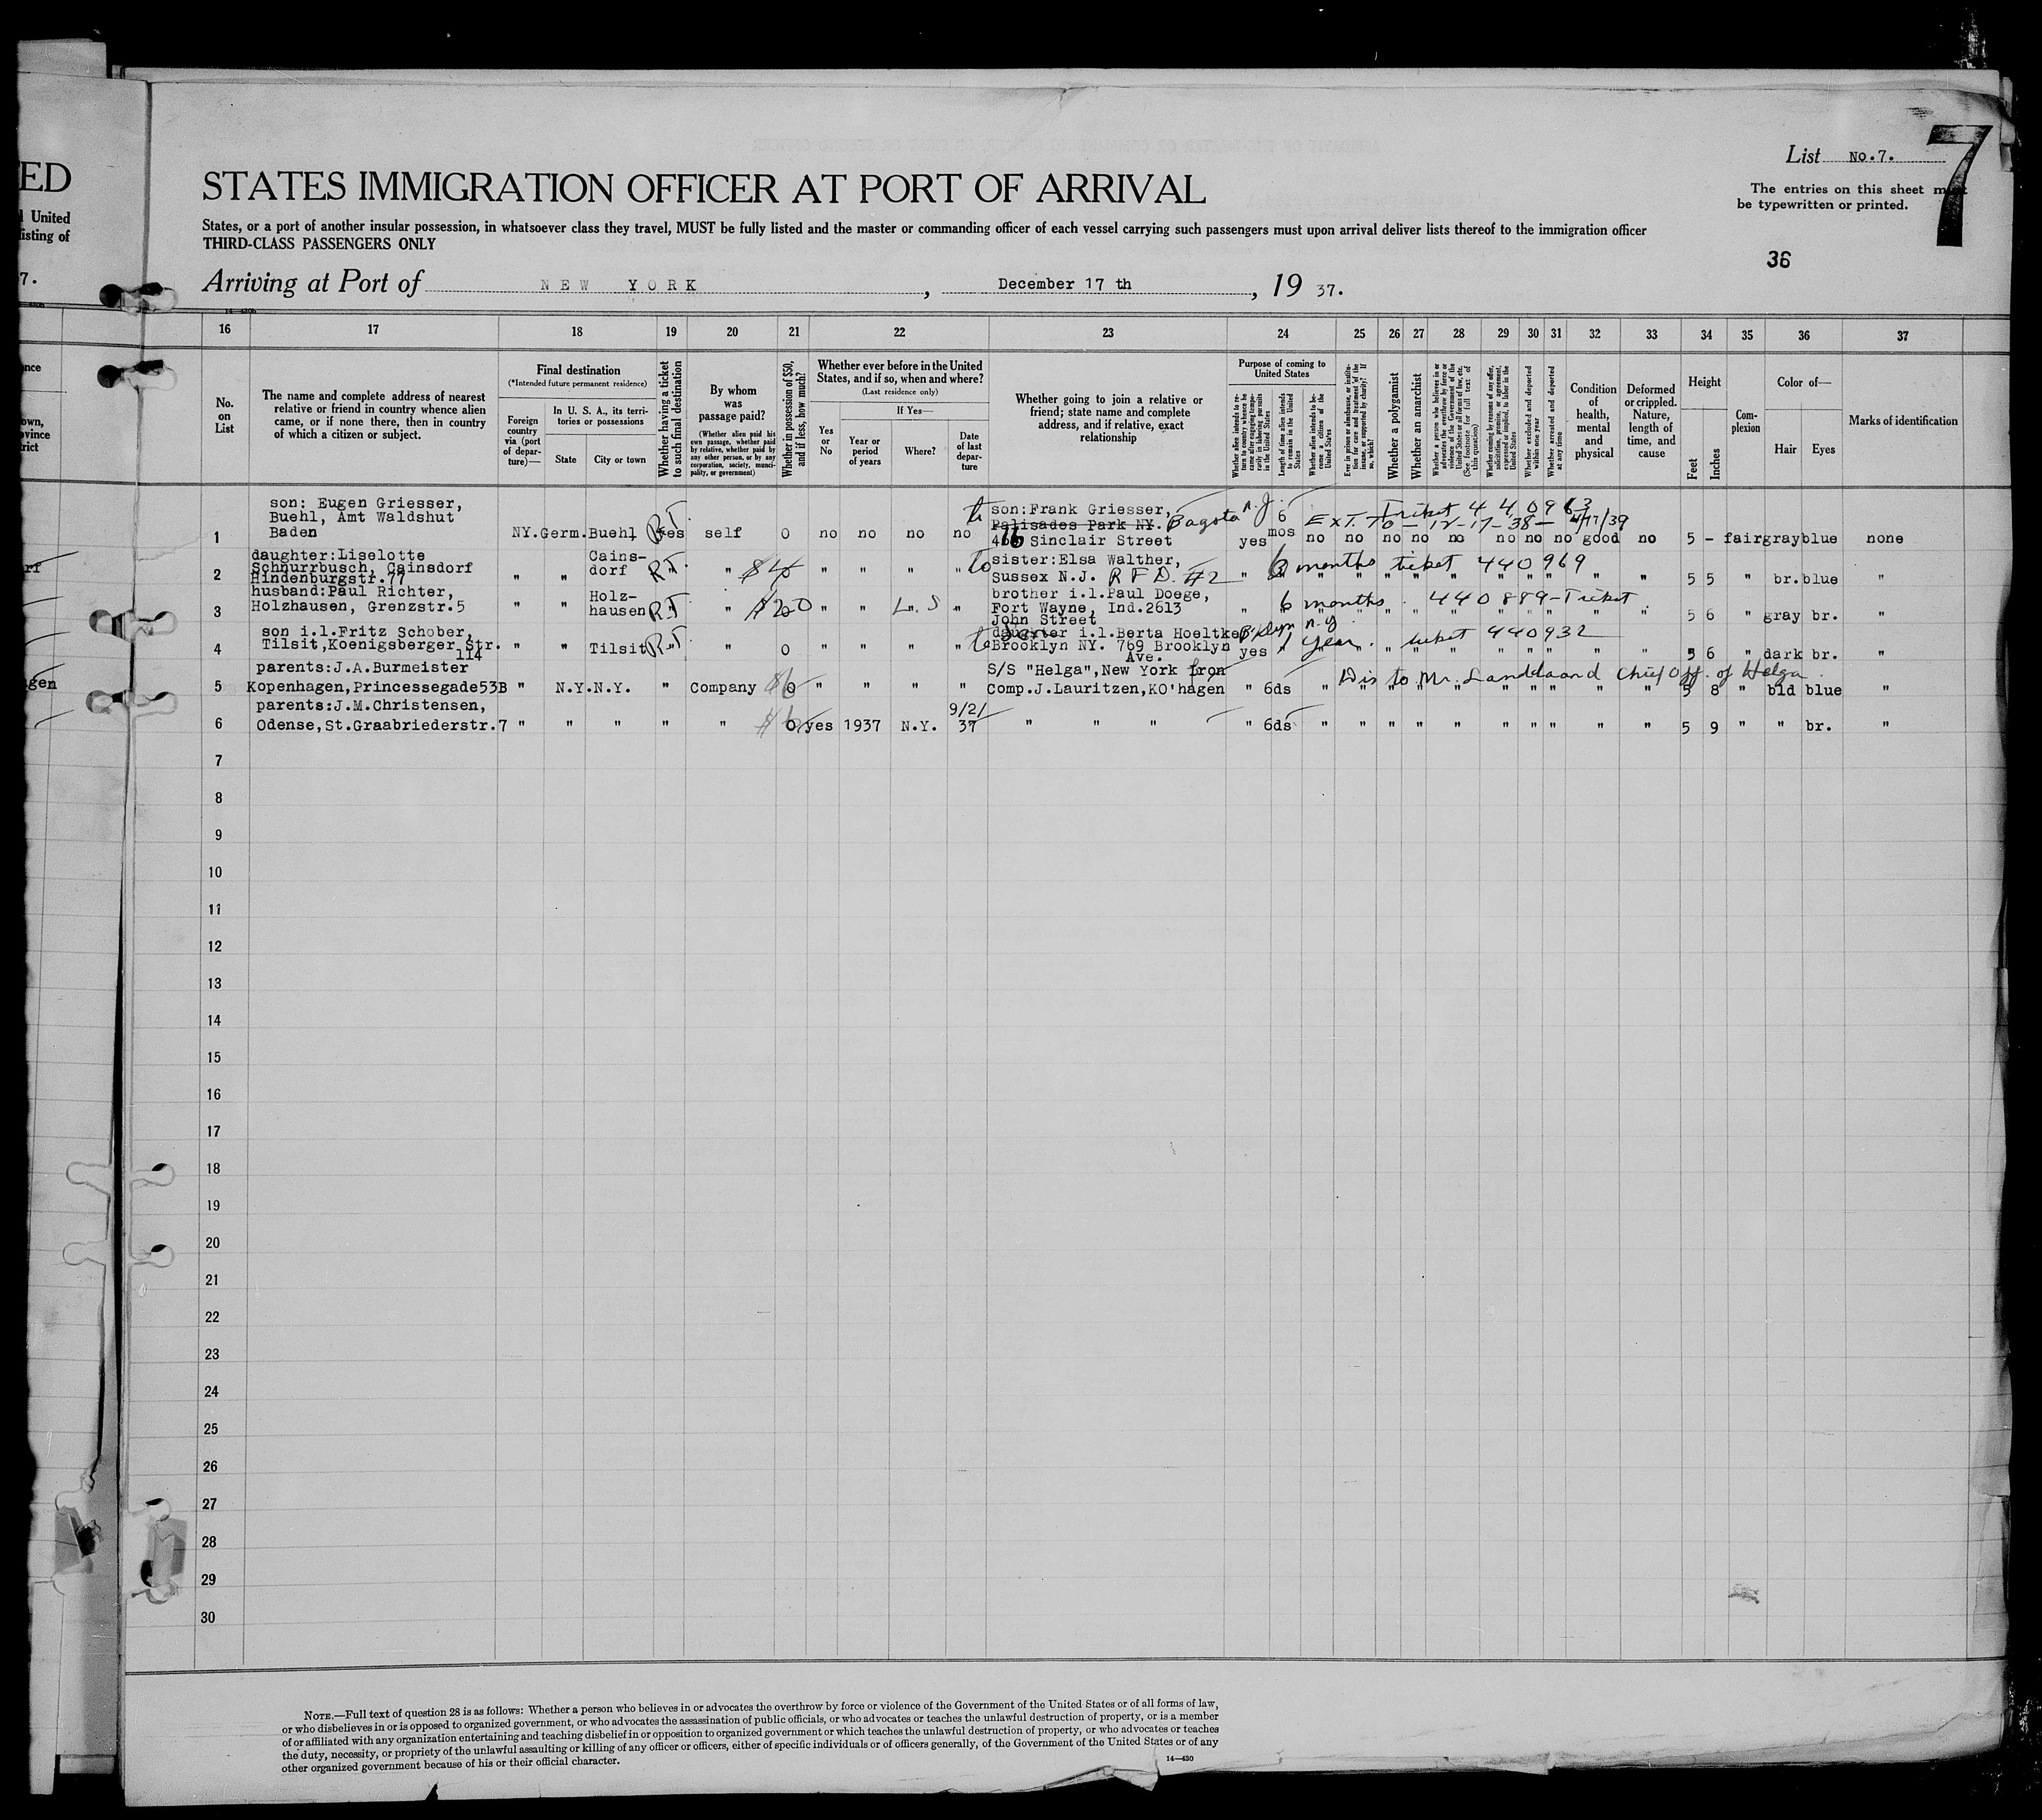 ED
List No. 7.
7
STATES IMMIGRATION OFFICER AT PORT OF ARRIVAL
The entries on this sheet must
be typewritten or printed.
United
isting of
States, or a port of another insular possession, in whatsoever class they travel, MUST be fully listed and the master or commanding officer of each vessel carrying such passengers must upon arrival deliver lists thereof to the immigration officer
THIRD-CLASS PASSENGERS ONLY
36
7.
Arriving at Port of NEW YORK, December 17 th, 19 37.
16 17 18 19 20 21 22 23 24 25 26 27 28 29 30 31 32 33 34 35 36 37
No. on List
The name and complete address of nearest
relative or friend in country whence alien
came, or if none there, then in country
of which a citizen or subject.
Final destination
(*Intended future permanent residence)
Foreign country via (port of departure)—
In U. S. A., its territories or possessions
State
City or town
Whether having a ticket to such final destination
By whom was passage paid?
(Whether alien paid his own passage, whether paid by relative, whether paid by any other person, or by any corporation, society, municipality, or government)
Whether in possession of $50, and if less, how much?
Whether ever before in the United
States, and if so, when and where?
(Last residence only)
Yes or No
If Yes—
Year or period of years
Where?
Date of last departure
Whether going to join a relative or
friend; state name and complete
address, and if relative, exact
relationship
Purpose of coming to
United States
Whether alien intends to return to country whence he came after engaging temporarily in laboring pursuits in the United States
Length of time alien intends to remain in the United States
Whether alien intends to become a citizen of the United States
Ever in prison or almshouse, or institution for care and treatment of the insane, or supported by charity? If so, which?
Whether a polygamist
Whether an anarchist
Whether a person who believes in or advocates the overthrow by force or violence of the Government of the United States or all forms of law, etc. (See footnote for full text of this question)
Whether coming by reasons of any offer, solicitation, promise, or agreement, expressed or implied, to labor in the United States
Whether excluded and deported within one year
Whether arrested and deported at any time
Condition of health, mental and physical
Deformed or crippled. Nature, length of time, and cause
Height
Feet
Inches
Complexion
Color of—
Hair
Eyes
Marks of identification
1 son: Eugen Griesser, Buehl, Amt Waldshut Baden NY. Germ. Buehl yes R.T. self 0 no no no no to son: Frank Griesser, Palisades Park NY. Bogota N.J. Sinclair Street yes 6 mos no no no no no no no no good no 5 - fair gray blue none
Ticket 440963
EXT. TO - 12-17-38 -
2 daughter: Liselotte Schnurrbusch, Cainsdorf Hindenburgstr. 77 " " Cainsdorf R.T. " " " " " to sister: Elsa Walther, Sussex N.J. RFD. #2 " 6 months ticket 440969 " " " " " " " " " " 5 5 " br. blue "
3 husband: Paul Richter, Holzhausen, Grenzstr. 5 " " Holzhausen R.T. " $20 " " " brother i.l. Paul Doege, Fort Wayne, Ind. 2613 John Street " 6 months. 440889-Ticket " " " " " " " " " " 5 6 " gray br. "
4 son i.l. Fritz Schober, Tilsit, Koenigsberger Str. 114 " " Tilsit R.T. " 0 " " " " to daughter i.l. Berta Hoeltke Bklyn n.y. Brooklyn NY. 769 Brooklyn Ave. yes 1 year. ticket 440932 " " " " " " " " " " 5 6 " dark br. "
5 parents: J.A. Burmeister Kopenhagen, Princessegade 53B " N.Y. N.Y. " Company 0 " " " " S/S "Helga", New York from Comp. J. Lauritzen, KO'hagen " 6ds " " " " " " " " " " " 5 8 " bld blue "
Dis to Mr. Landdaard Chief Off. of Helga
6 parents: J.M. Christensen, Odense, St. Graabriederstr. 7 " " " " " 0 yes 1937 N.Y. 9/2/37 " " " " 6ds " " " " " " " " " " " 5 9 " " br. "
7
8
9
10
11
12
13
14
15
16
17
18
19
20
21
22
23
24
25
26
27
28
29
30
NOTE.—Full text of question 28 is as follows: Whether a person who believes in or advocates the overthrow by force or violence of the Government of the United States or of all forms of law,
or who disbelieves in or is opposed to organized government, or who advocates the assassination of public officials, or who advocates or teaches the unlawful destruction of property, or is a member
of or affiliated with any organization entertaining and teaching disbelief in or opposition to organized government or which teaches the unlawful destruction of property, or who advocates or teaches
the duty, necessity, or propriety of the unlawful assaulting or killing of any officer or officers, either of specific individuals or of officers generally, of the Government of the United States or of any
other organized government because of his or their official character.
14—430